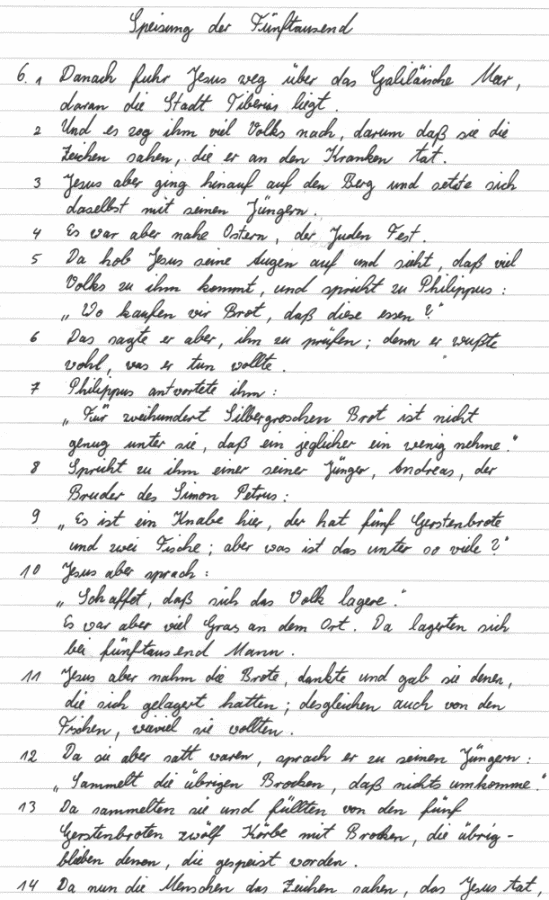 Speisung der Fünftausend
6. 1 Danach fuhr Jesus weg über das Galiläische Meer,
daran die Stadt Tiberias liegt.
2 Und es zog ihm viel Volks nach, darum daß sie die
Zeichen sahen, die er an den Kranken tat.
3 Jesus aber ging hinauf auf den Berg und setzte sich
daselbst mit seinen Jüngern.
4 Es war aber nahe Ostern, der Juden Fest.
5 Da hob Jesus seine Augen auf und sieht, daß viel
Volks zu ihm kommt, und spricht zu Philippus:
„Wo kaufen wir Brot, daß diese essen?"
6 Das sagte er aber, ihn zu prüfen; denn er wußte
wohl, was er tun wollte.
7 Philippus antwortete ihm:
„Für zweihundert Silbergroschen Brot ist nicht
genug unter sie, daß ein jeglicher ein wenig nehme."
8 Spricht zu ihm einer seiner Jünger, Andreas, der
Bruder des Simon Petrus:
9 „Es ist ein Knabe hier, der hat fünf Gerstenbrote
und zwei Fische; aber was ist das unter so viele?"
10 Jesus aber sprach:
„Schaffet, daß sich das Volk lagere."
Es war aber viel Gras an dem Ort. Da lagerten sich
bei fünftausend Mann.
11 Jesus aber nahm die Brote, dankte und gab sie denen,
die sich gelagert hatten; desgleichen auch von den
Fischen, wieviel sie wollten.
12 Da sie aber satt waren, sprach er zu seinen Jüngern:
„Sammelt die übrigen Brocken, daß nichts umkomme."
13 Da sammelten sie und füllten von den fünf
Gerstenbroten zwölf Körbe mit Brocken, die übrig-
blieben denen, die gespeist worden.
14 Da nun die Menschen das Zeichen sahen, das Jesus tat,